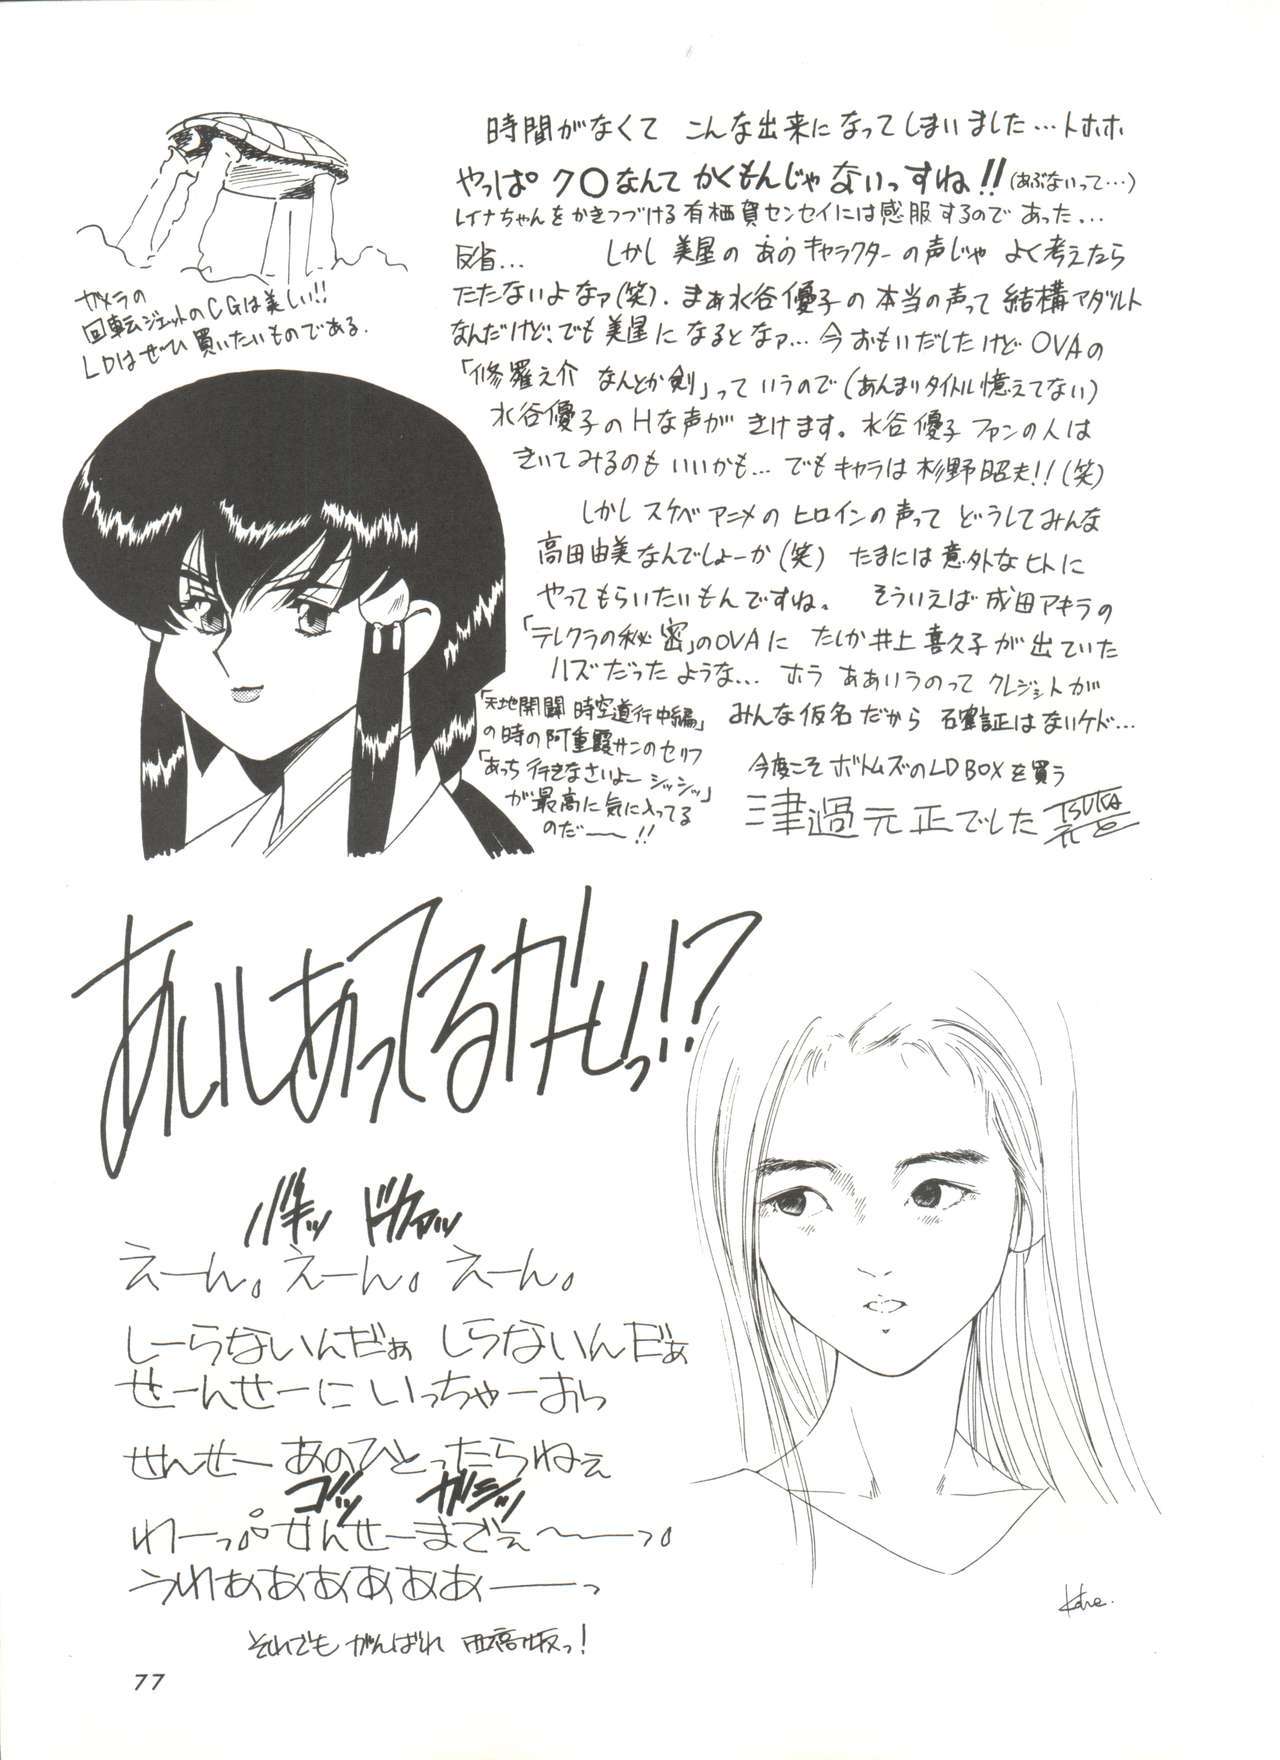 時間がなくて こんな出来になってしまいました…トホホ
やっぱ ク○なんて かくもんじゃ ないっすね!!(あぶないって…)
レイナちゃんをかきつづける有栖賀センセイには感服するのであった…
反省… しかし美星の あの キャラクターの声じゃ よく考えたら
たたないよなァ(笑). まぁ水谷優子の本当の声って 結構アダルト
なんだけど、でも美星に なるとなァ… 今おもいだしたけど OVAの
「修羅之介 なんとか剣」って いうので(あんまりタイトル憶えてない)
水谷優子のHな声が きけます。水谷優子ファンの人は
きいてみるのも いいかも… でもキャラは杉野昭夫!!(笑)
しかし スケベアニメの ヒロインの声って どうしてみんな
高田由美なんでしょーか(笑) たまには意外なヒトに
やってもらいたいもんですね。 そういえば成田アキラの
「テレクラの秘密」のOVAに たしか井上喜久子が出ていた
ハズだったような… ホラ ああいうのって クレジットが
みんな仮名だから 確証はないケド…
今度こそ ボトムズのLD BOXを買う
津過元正でした
ガメラの
回転ジェットのCGは美しい!!
LDはぜひ 買いたいものである.
「天地開闢 時空道行中編」
の時の阿重霞サンのセリフ
「あっち行きなさいよー シッシッ」
が最高に気に入ってる
のだ――!!
バキッ ドカァッ
えーん。えーん。えーん。
しーらないんだぁ しらないんだぁ
せーんせーに いっちゃーおら
せんせー あのひとったらねぇ
ゴッ ガシッ
わーっ。せんせーまでぇ〜――っ。
うわぁあああああ――っ
それでも がんばれ 西高版っ!
77